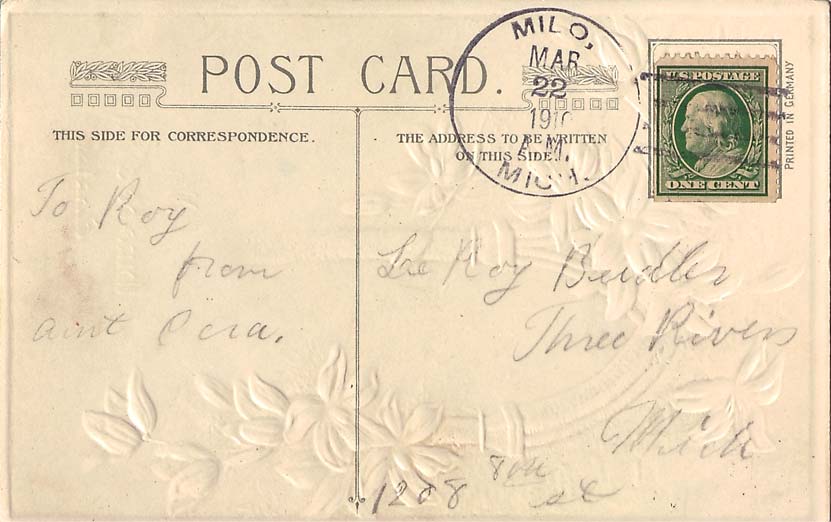 POST CARD.
THIS SIDE FOR CORRESPONDENCE.
THE ADDRESS TO BE WRITTEN
ON THIS SIDE.
MILO,
MAR
22
1910
A.M.
MICH.
U.S. POSTAGE
ONE CENT
PRINTED IN GERMANY
To Roy
from
aint Ocra.
Le Roy Beadler
Three Rivers
Mich
1208 8th
st